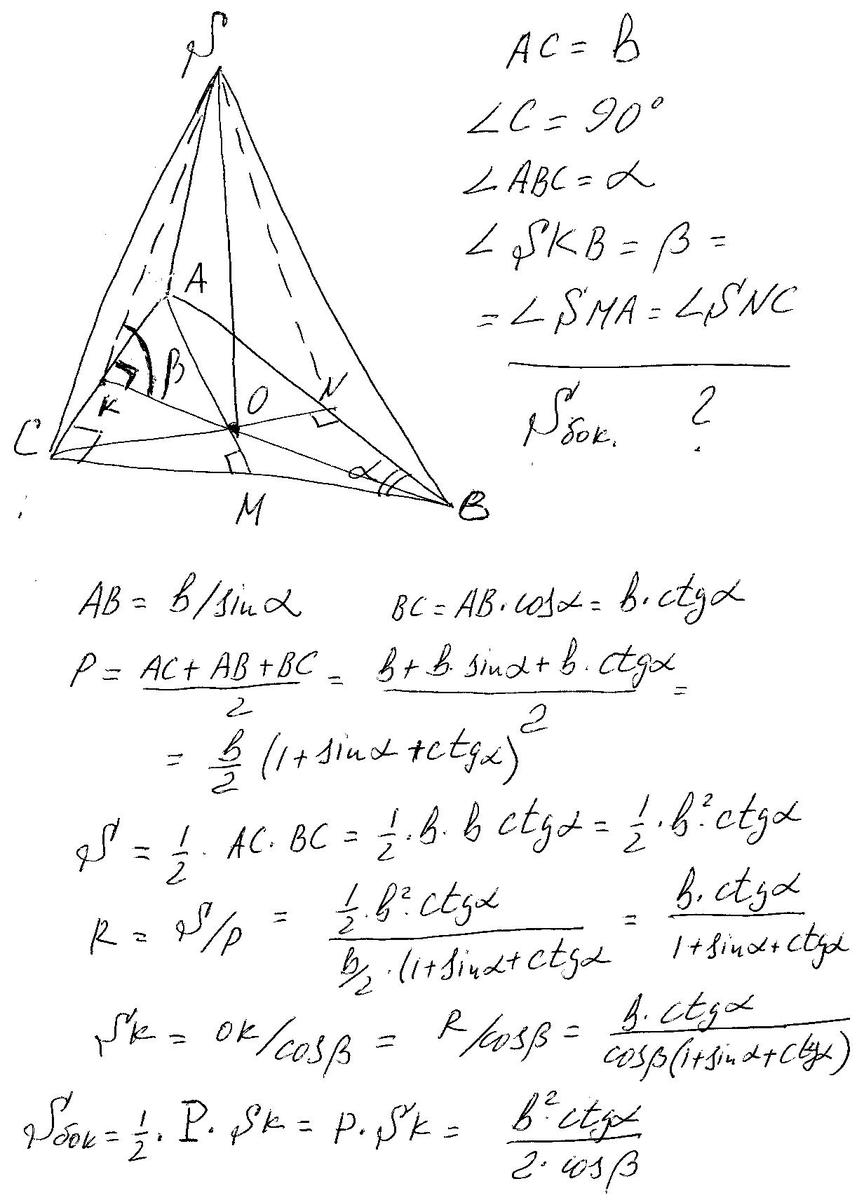 S
A
K
β
O
N
C
M
α
B
AC = b
∠C = 90°
∠ABC = α
∠SKB = β =
= ∠SMA = ∠SNC
Sбок. ?
AB = b/sinα BC = AB·cosα = b·ctgα
P = (AC + AB + BC)/2 = (b + b·sinα + b·ctgα)/2 =
= b/2 (1 + sinα + ctgα)
S = 1/2 · AC · BC = 1/2 · b · b ctgα = 1/2 · b² · ctgα
R = S/p = (1/2 · b² · ctgα)/(b/2 · (1 + sinα + ctgα) = (b · ctgα)/(1 + sinα + ctgα)
SK = OK/cosβ = R/cosβ = (b · ctgα)/(cosβ(1 + sinα + ctgα))
Sбок = 1/2 · P · SK = p · SK = (b² · ctgα)/(2 · cosβ)